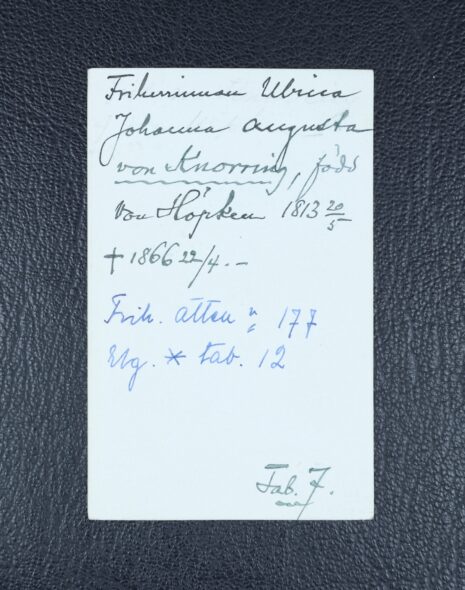 Friherrinnan Ulrica
Johanna Augusta
von Knorring, född
von Höpken 1813 20/5
† 1866 22/4. –
Frih. ätten n: 177
Elg. * tab. 12
Tab. 7.